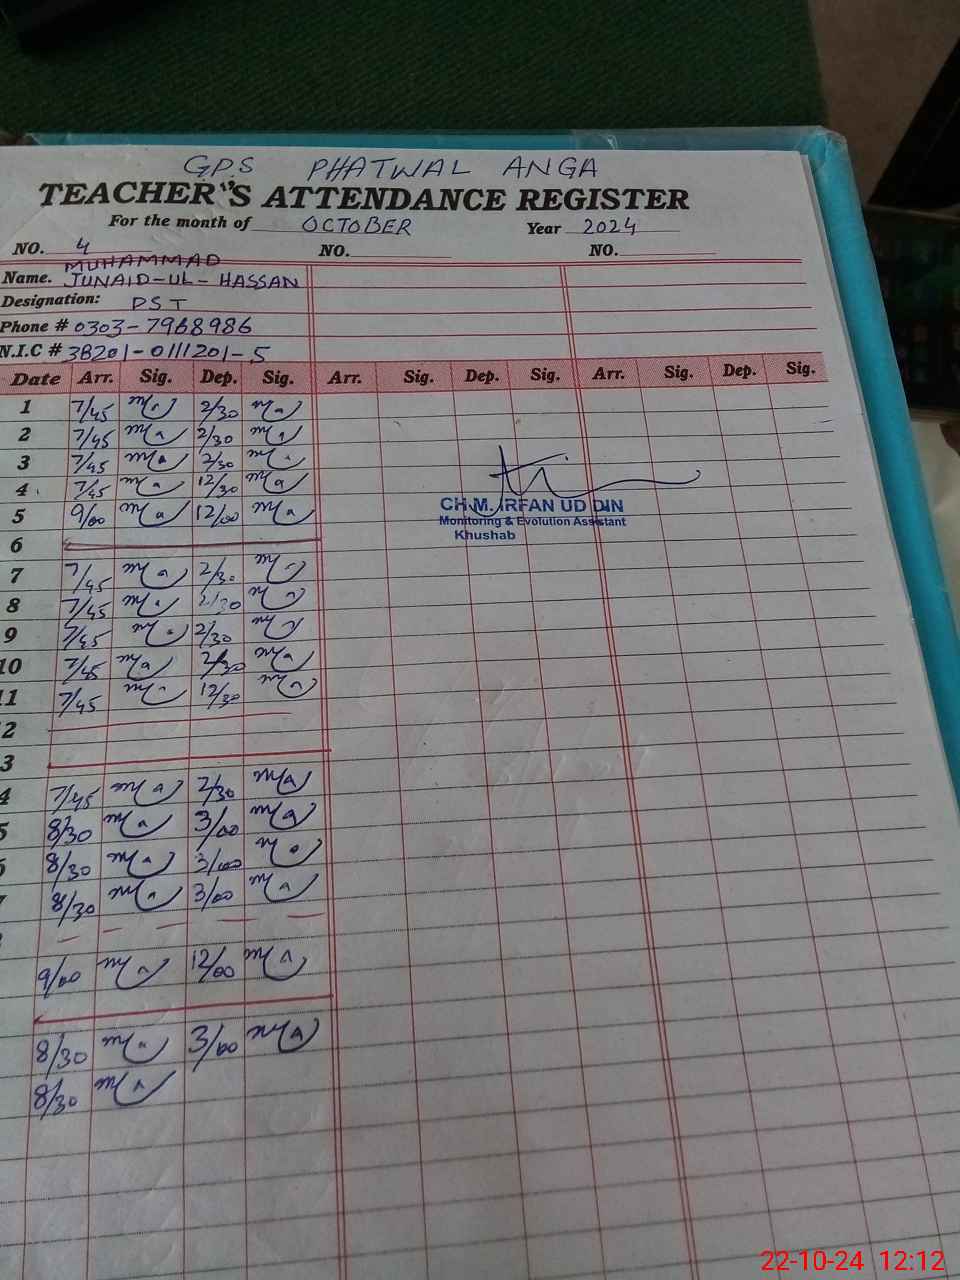 G.P.S PHATWAL ANGA
TEACHER'S ATTENDANCE REGISTER
For the month of OCTOBER Year 2024
NO. 4 NO. NO.
MUHAMMAD
Name. JUNAID-UL-HASSAN
Designation: PST
Phone # 0303-7968986
N.I.C # 38201-0111201-5
Date Arr. Sig. Dep. Sig. Arr. Sig. Dep. Sig. Arr. Sig. Dep. Sig.
1 7/45 2/30
2 7/45 2/30
3 7/45 2/30
4 7/45 12/30
5 9/00 12/00
6
7 7/45 2/30
8 7/45 2/30
9 7/45 2/30
10 7/45 2/30
11 7/45 12/30
2
3
4 7/45 2/30
5 8/30 3/00
8/30 3/00
8/30 3/00
9/00 12/00
8/30 3/00
8/30
CH M. IRFAN UD DIN
Monitoring & Evolution Assistant
Khushab
22-10-24 12:12